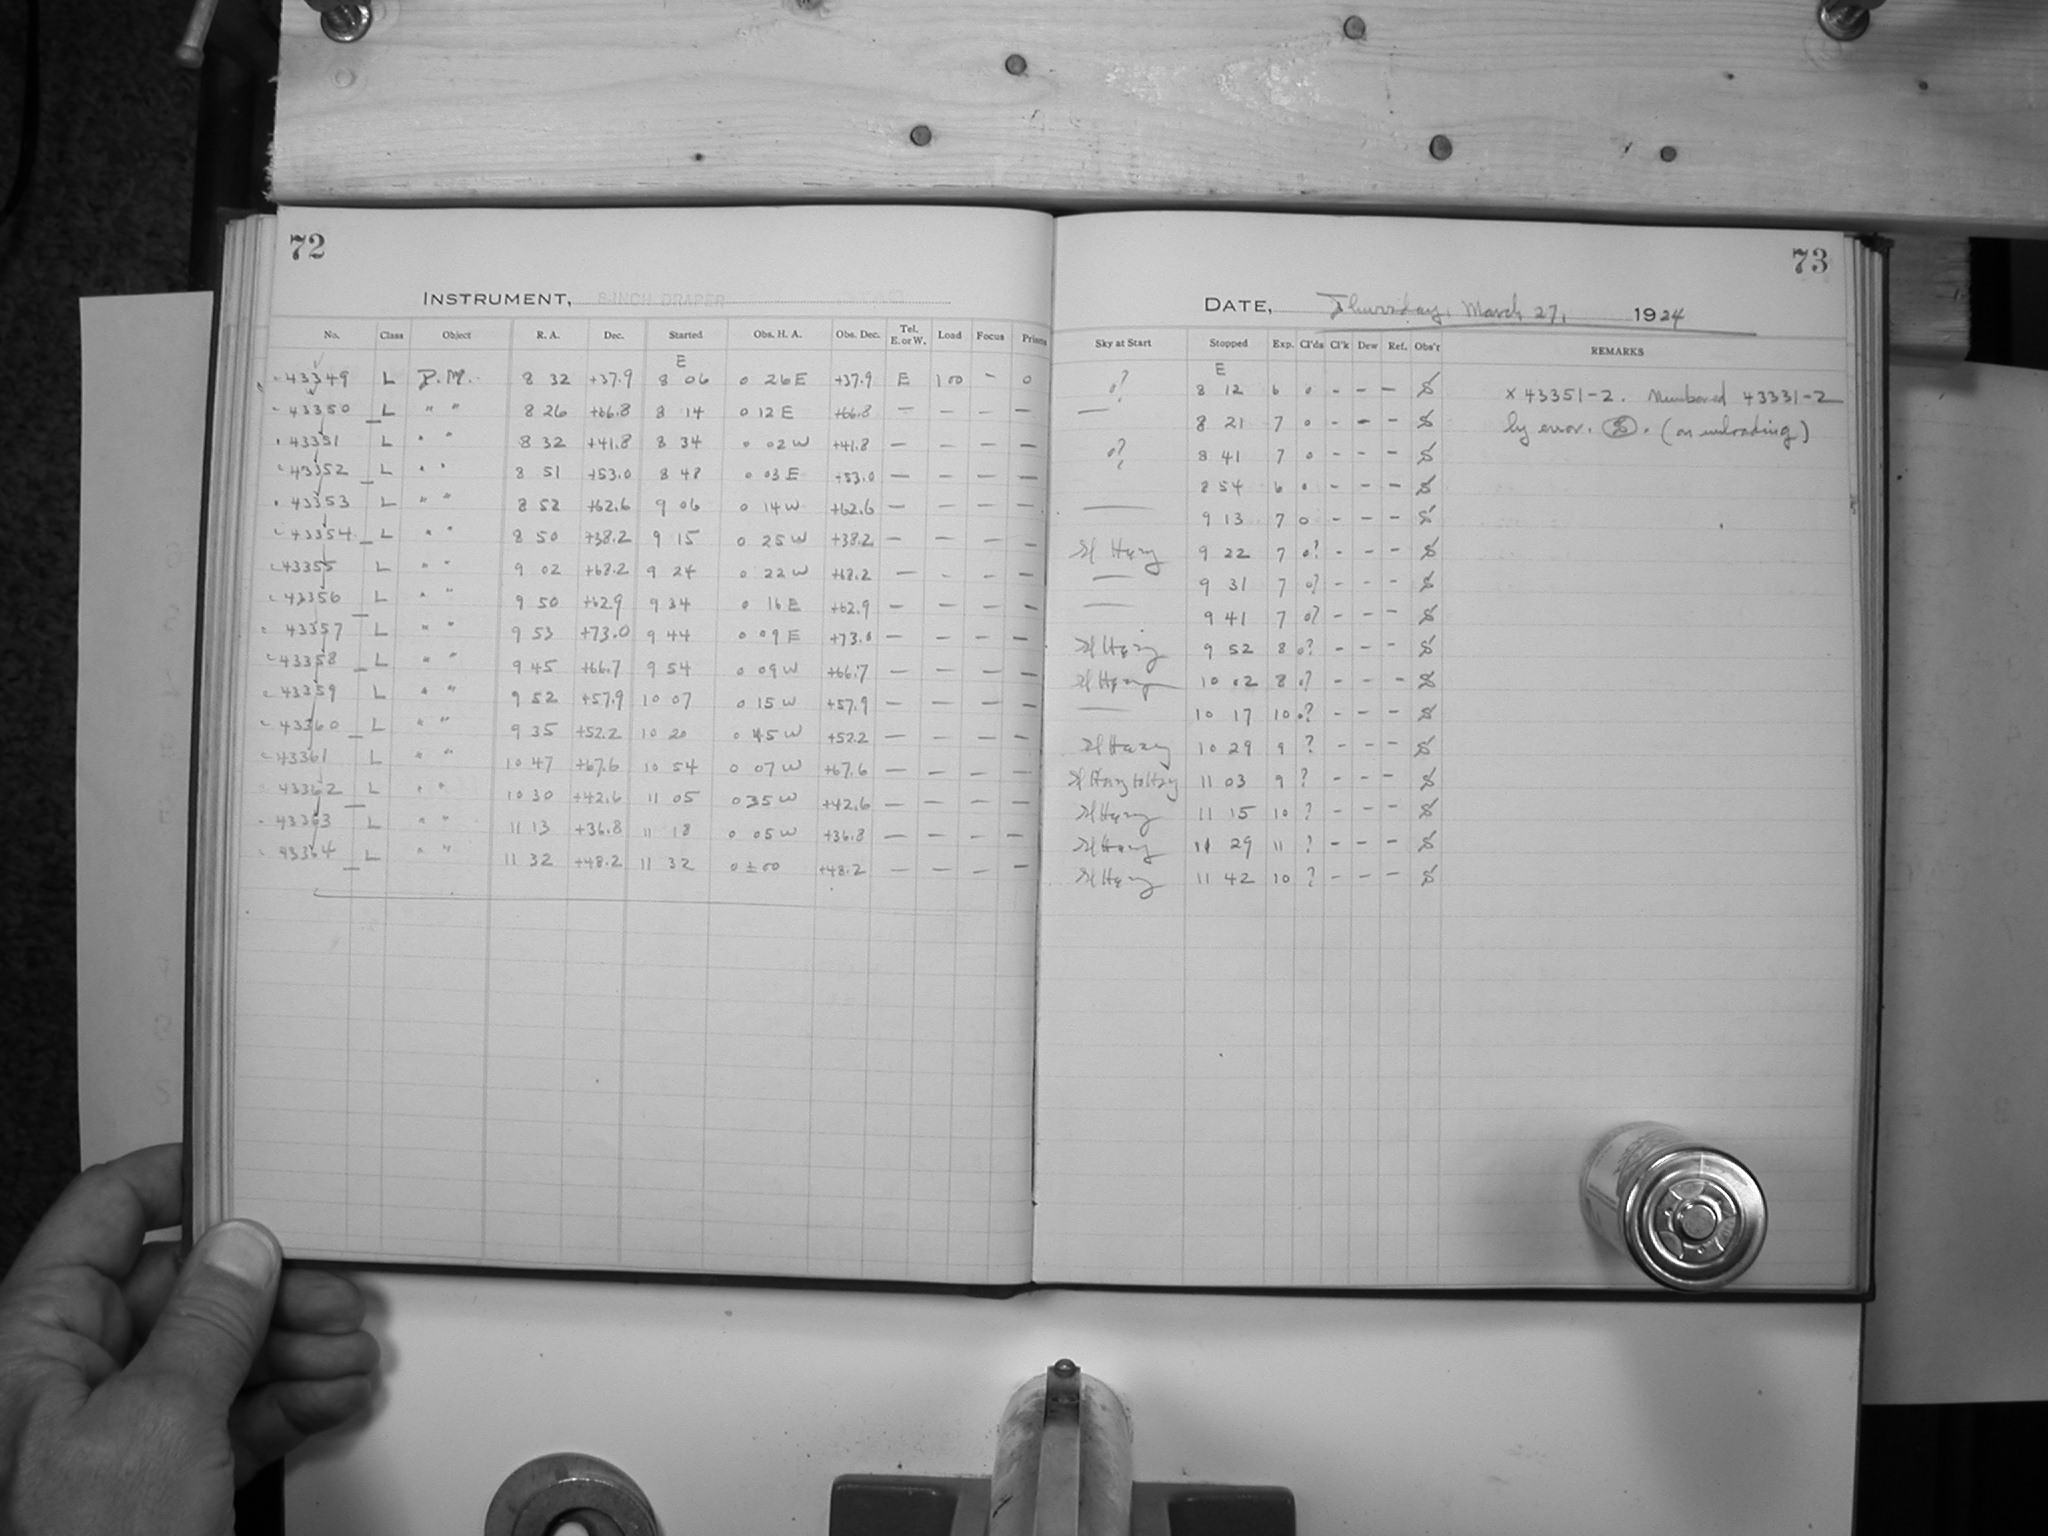 72
73
INSTRUMENT, 8-INCH DRAPER
DATE, Thursday, March 27, 1924
No. Class Object R. A. Dec. Started Obs. H. A. Obs. Dec. Tel. E. or W. Load Focus Prisms Sky at Start Stopped Exp. Cl'ds Cl'k Dew Ref. Obs'r REMARKS
E E
43349 L P.M. 8 32 +37.9 8 06 0 26 E +37.9 E 100 - 0 0? 8 12 6 0 - - - S × 43351-2. Numbered 43331-2
43350 L " " 8 26 +66.8 8 14 0 12 E +66.8 — — — — — 8 21 7 0 - - - S by error. S. (on unloading)
43351 L " " 8 32 +41.8 8 34 0 02 W +41.8 — — — — 0? 8 41 7 0 - - - S
43352 L " " 8 51 +53.0 8 48 0 03 E +53.0 — — — — 8 54 6 0 - - - S
43353 L " " 8 52 +62.6 9 06 0 14 W +62.6 — — — — — 9 13 7 0 - - - S
43354 L " " 8 50 +38.2 9 15 0 25 W +38.2 — — — — Sl Hazy 9 22 7 0? - - - S
43355 L " " 9 02 +68.2 9 24 0 22 W +68.2 — - — — — 9 31 7 0? - - - S
43356 L " " 9 50 +62.9 9 34 0 16 E +62.9 — — — — — 9 41 7 0? - - - S
43357 L " " 9 53 +73.0 9 44 0 09 E +73.0 — — — — Sl Hazy 9 52 8 0? - - - S
43358 L " " 9 45 +66.7 9 54 0 09 W +66.7 — — — — Sl Hazy 10 02 8 0? - - - S
43359 L " " 9 52 +57.9 10 07 0 15 W +57.9 — — — — — 10 17 10 0? - - - S
43360 L " " 9 35 +52.2 10 20 0 45 W +52.2 — — — — Sl Hazy 10 29 9 ? - - - S
43361 L " " 10 47 +67.6 10 54 0 07 W +67.6 — — — — Sl Hazy to Hazy 11 03 9 ? - - - S
43362 L " " 10 30 +42.6 11 05 0 35 W +42.6 — — — — Sl Hazy 11 15 10 ? - - - S
43363 L " " 11 13 +36.8 11 18 0 05 W +36.8 — — — — Sl Hazy 11 29 11 ? - - - S
43364 L " " 11 32 +48.2 11 32 0 ± 00 +48.2 — — — — Sl Hazy 11 42 10 ? - - - S